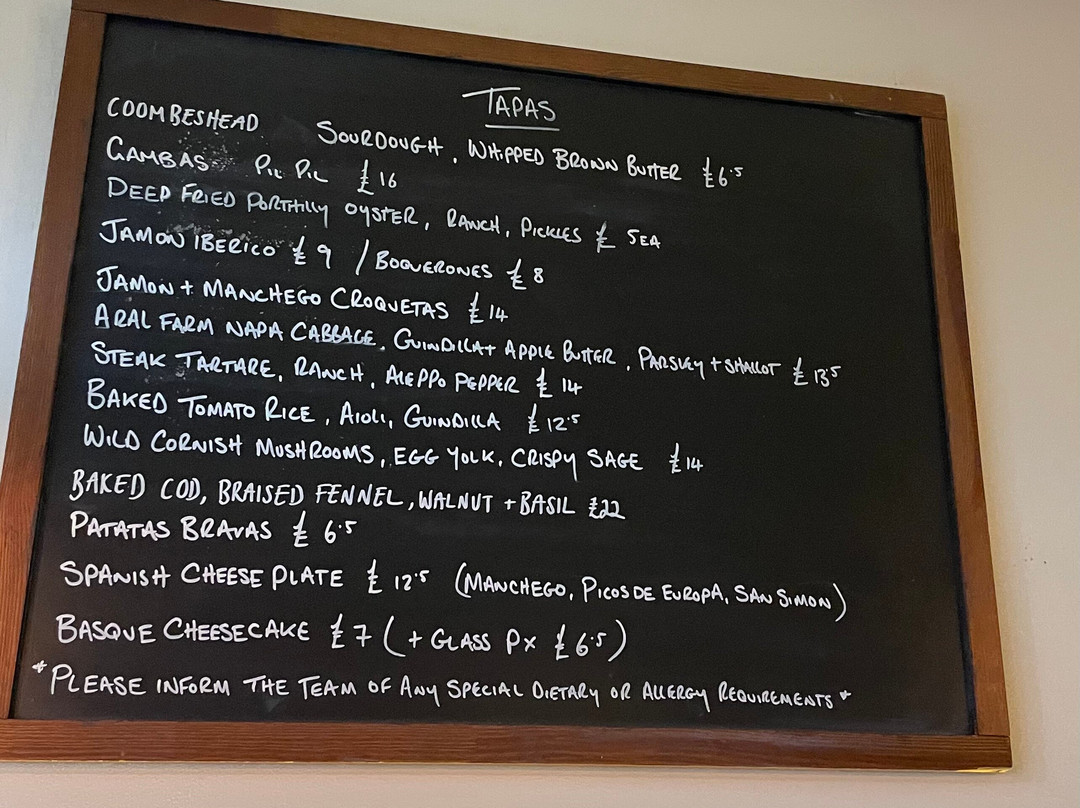 TAPAS
COOMBESHEAD SOURDOUGH, WHIPPED BROWN BUTTER £6.5
GAMBAS PIL PIL £16
DEEP FRIED PORTHILLY OYSTER, RANCH, PICKLES £ 5EA
JAMON IBERICO £9 / BOQUERONES £8
JAMON + MANCHEGO CROQUETAS £14
ARAL FARM NAPA CABBAGE, GUINDILLA + APPLE BUTTER, PARSLEY + SHALLOT £13.5
STEAK TARTARE, RANCH, ALEPPO PEPPER £14
BAKED TOMATO RICE, AIOLI, GUINDILLA £12.5
WILD CORNISH MUSHROOMS, EGG YOLK, CRISPY SAGE £14
BAKED COD, BRAISED FENNEL, WALNUT + BASIL £22
PATATAS BRAVAS £6.5
SPANISH CHEESE PLATE £12.5 (MANCHEGO, PICOS DE EUROPA, SAN SIMON)
BASQUE CHEESECAKE £7 (+ GLASS PX £6.5)
*PLEASE INFORM THE TEAM OF ANY SPECIAL DIETARY OR ALLERGY REQUIREMENTS*